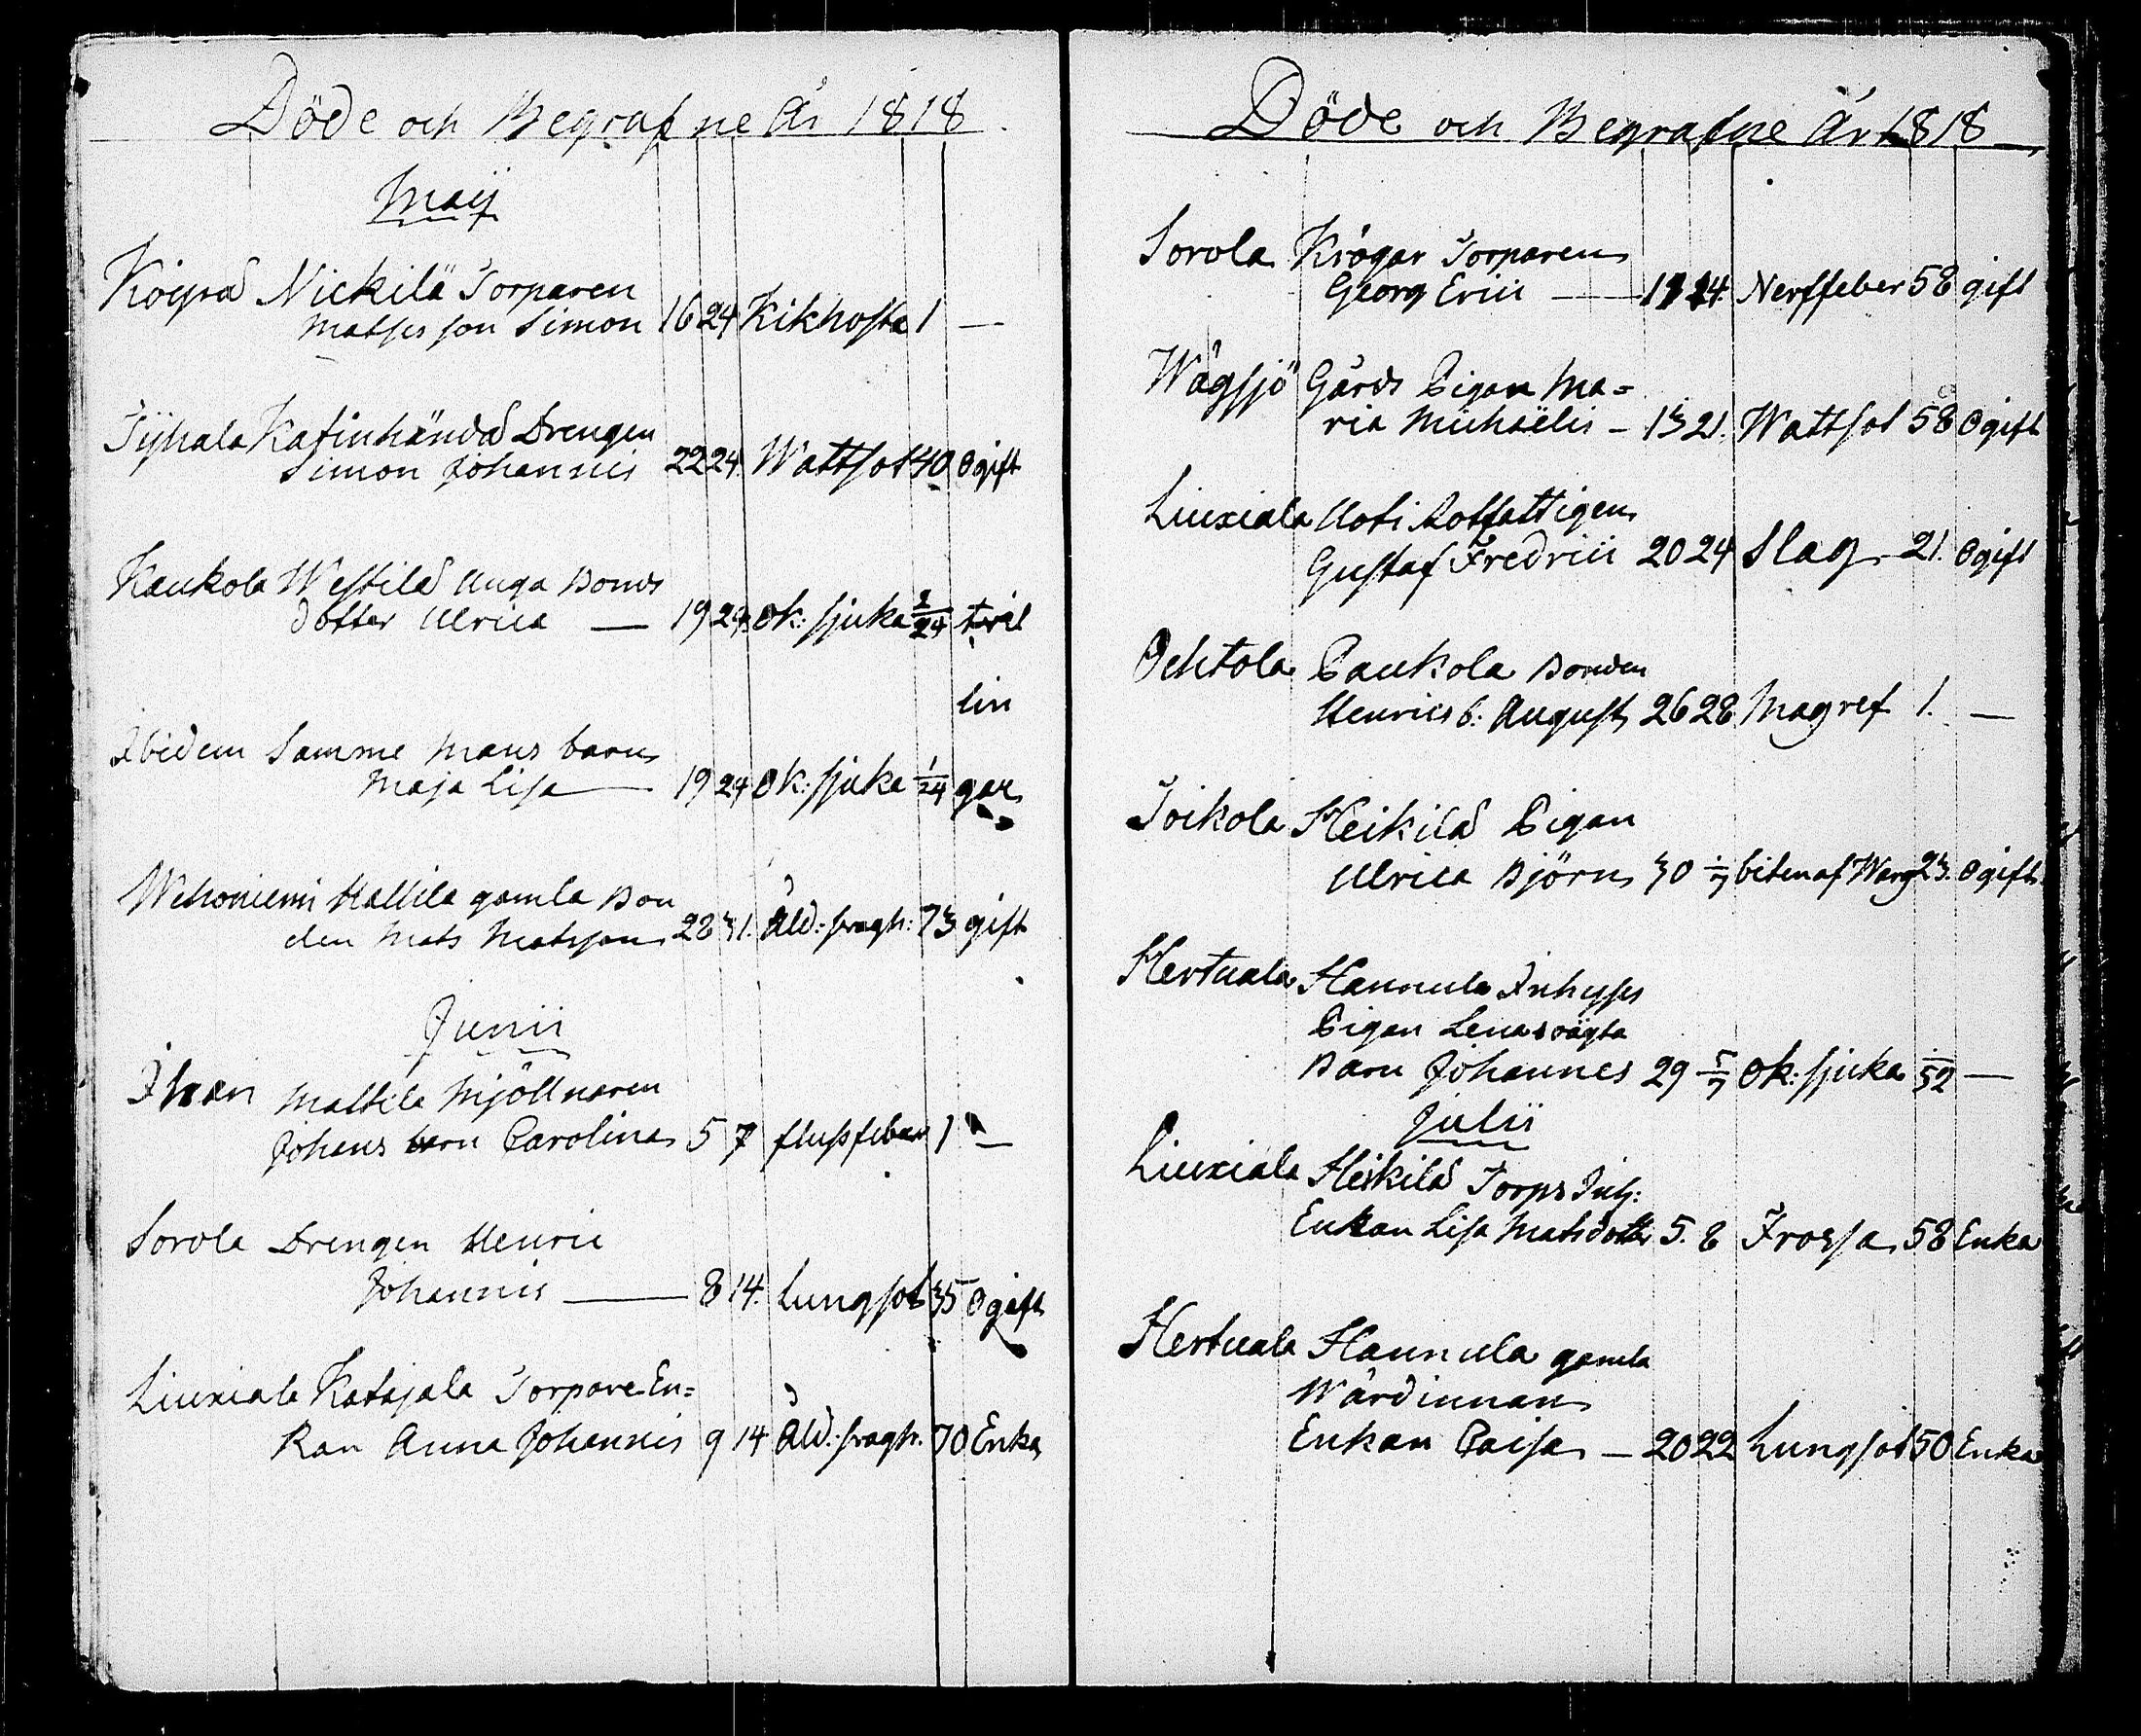 Döde och Begrafne År 1818
Maij
Köyrä Nickilä Torparen
Matses son Simon 16 24 Kikhosta 1 —
Tÿhala Drengen
Simon Johannis 22 24. Wattsot 40 Ogift
Kaukola Westilä unga Bonds
dotter Ulrica — 19 24 Ok: sjuka 1/24 tvil
lin
Ibidem Samme Mans barn
Maja Lisa — 19 24 Ok: sjuka 1/24 gar
Wehoniemi Mattila gamla Bon
den Mats Matsson 28 31. Åld: bragh: 73 gift
Junii
Ihari Mattila Mjöllnaren
Johans barn Carolina 5 7 flussfeber 1 —
Sorola Drengen Henric
Johannis — 8 14. Lungsot 35 Ogift
Liuxiala Katajala Torpare En=
kan Anna Johannis 9 14 Åld: bragh. 70 Enka
Döde och Begrafne År 1818
Sorola Krögar Torparen
Georg Erici — 24 Nerffeber 58 gift
Wägsjö Gårds Pigan Ma=
ria Michaëlis — 13 21. Wattsot 58 Ogift
Liuxiala Uoti Rotfattigen
Gustaf Fredrici 20 24 Slag 21. Ogift
Ochtola Paukola Bonden
Henrics b: August 26 28 Magref 1. —
Toikola Heikilä Pigan
Ulrica Björn 30 1/7 biten af Warg 23. Ogift
Hertuala Hannula Inhyses
Pigan Lenas oägta
Barn Johannes 29 5/7 Ok: sjuka 1/52 —
Julii
Liuxiala Heikilä Torps Inh:
Enkan Lisa Matsdotter 5. 8 Frossa 58 Enka
Hertuala Hannula gamla
Wärdinnan
Enkan Caisa — 20 22 Lungsot 50 Enka